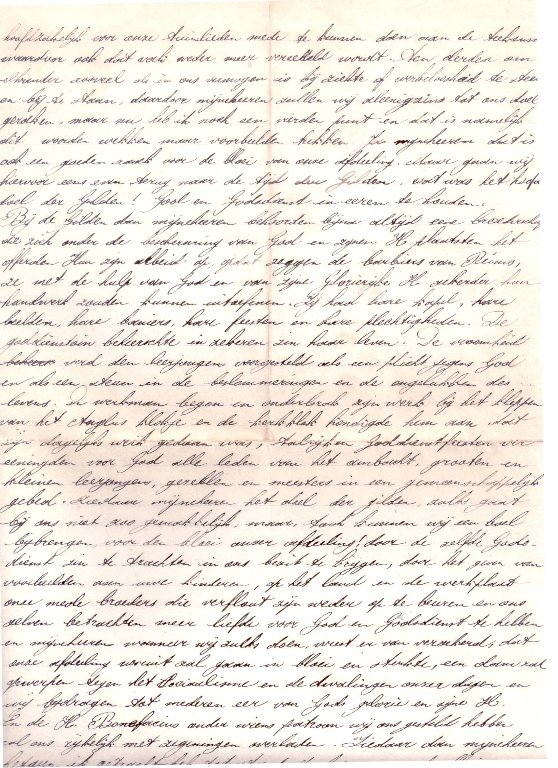 hoofdzakelijk voor onze tuinlieden mede te kunnen doen aan de
waardoor ook dat vak weder meer veredeld wordt. Ten derden om
elkander zooveel als in ons vermogen is bij ziekte of werkeloosheid te steu
en bij te staan, daardoor mijneheeren zullen wij eenigzins tot ons doel
geraken, maar nu heb ik nog een vierden punt en dat is namelijk
dit woorden wekken maar voorbeelden trekken Ja mijneheeren dat is
ook een goeden zaak voor de bloei van onze afdeeling. Maar gaan wij
hiervoor eens even terug naar de tijd der Gilden. wat was het hoofd
doel der Gilden! God en Godsdienst in eeren te houden.
Bij de Gilden dan mijneheeren behoorden bijna altijd eene broederschap
die zich onder de bescherming van God en zijnen H. plaatsten het
offerden Hun zijn arbeid op zeggen de barbiers van Reims,
ze met de hulp van God en van zijne Glorierijke H. hun
handwerk zouden kunnen uitoefenen. Zij had hare kapel, hare
beelden, hare baniers, hare feesten en hare plechtigheden. De
godsdienstzin beheerschte in zekeren zin haar leven. De vroomheid
werd den leerjongen voorgesteld als een plicht jegens God
en als een steun in de beslommeringen en de ongelukken des
levens. werkman begon en onderbrak zijn werk bij het kleppen
van het Angelus klokje en de kerkklok kondigde hem aan dat
zijn dagelijks werk gedaan was, talrijken Godsdienstfeesten ver
eenigden voor God alle leden van het ambacht, grooten en
kleinen leerjongens, gezellen en meesters in een gemeenschappelijk
gebed. Ziedaar mijneheeren het doel der gilden, zulks gaat
bij ons niet zoo gemakkelijk, maar, toch kunnen wij een doel
bijbrengen, voor den bloei onzer afdeeling! door de zelfde Gods-
dienst zin te trachten in ons bezit te krijgen, door het geven van
voorbeelden aan uwe kinderen, op het land en de werkplaats
onze mede broeders die verflauwt zijn weder op te beuren en ons
zelven betrachten meer liefde voor God en Godsdienst te hebben
en mijneheeren wanneer wij zulks doen, weest er van verzekerd, dat
onze afdeeling vooruit zal gaan in bloei en sterkte, een dam zal
opwerpen tegen het Socialisme en de dwalingen onzer dagen en
wij bijdragen tot mederen eer van Gods glorie en zijne H.
En de H. Bonefacius onder wiens patroon wij ons gesteld hebben
zal ons rijkelijk met zegeningen overladen. Ziedaar dan mijneheeren